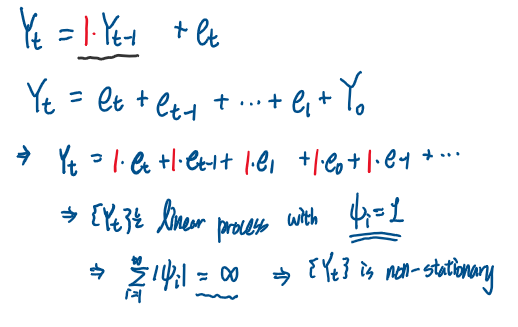 Y_t = 1·Y_{t-1} + e_t
Y_t = e_t + e_{t-1} + ··· + e_1 + Y_0
⇒ Y_t = 1·e_t + 1·e_{t-1} + 1·e_1 + 1·e_0 + 1·e_{-1} + ···
⇒ {Y_t}는 linear process with ψ_i = 1
⇒ ∑_{i=1}^{∞} |ψ_i| = ∞ ⇒ {Y_t} is non-stationary